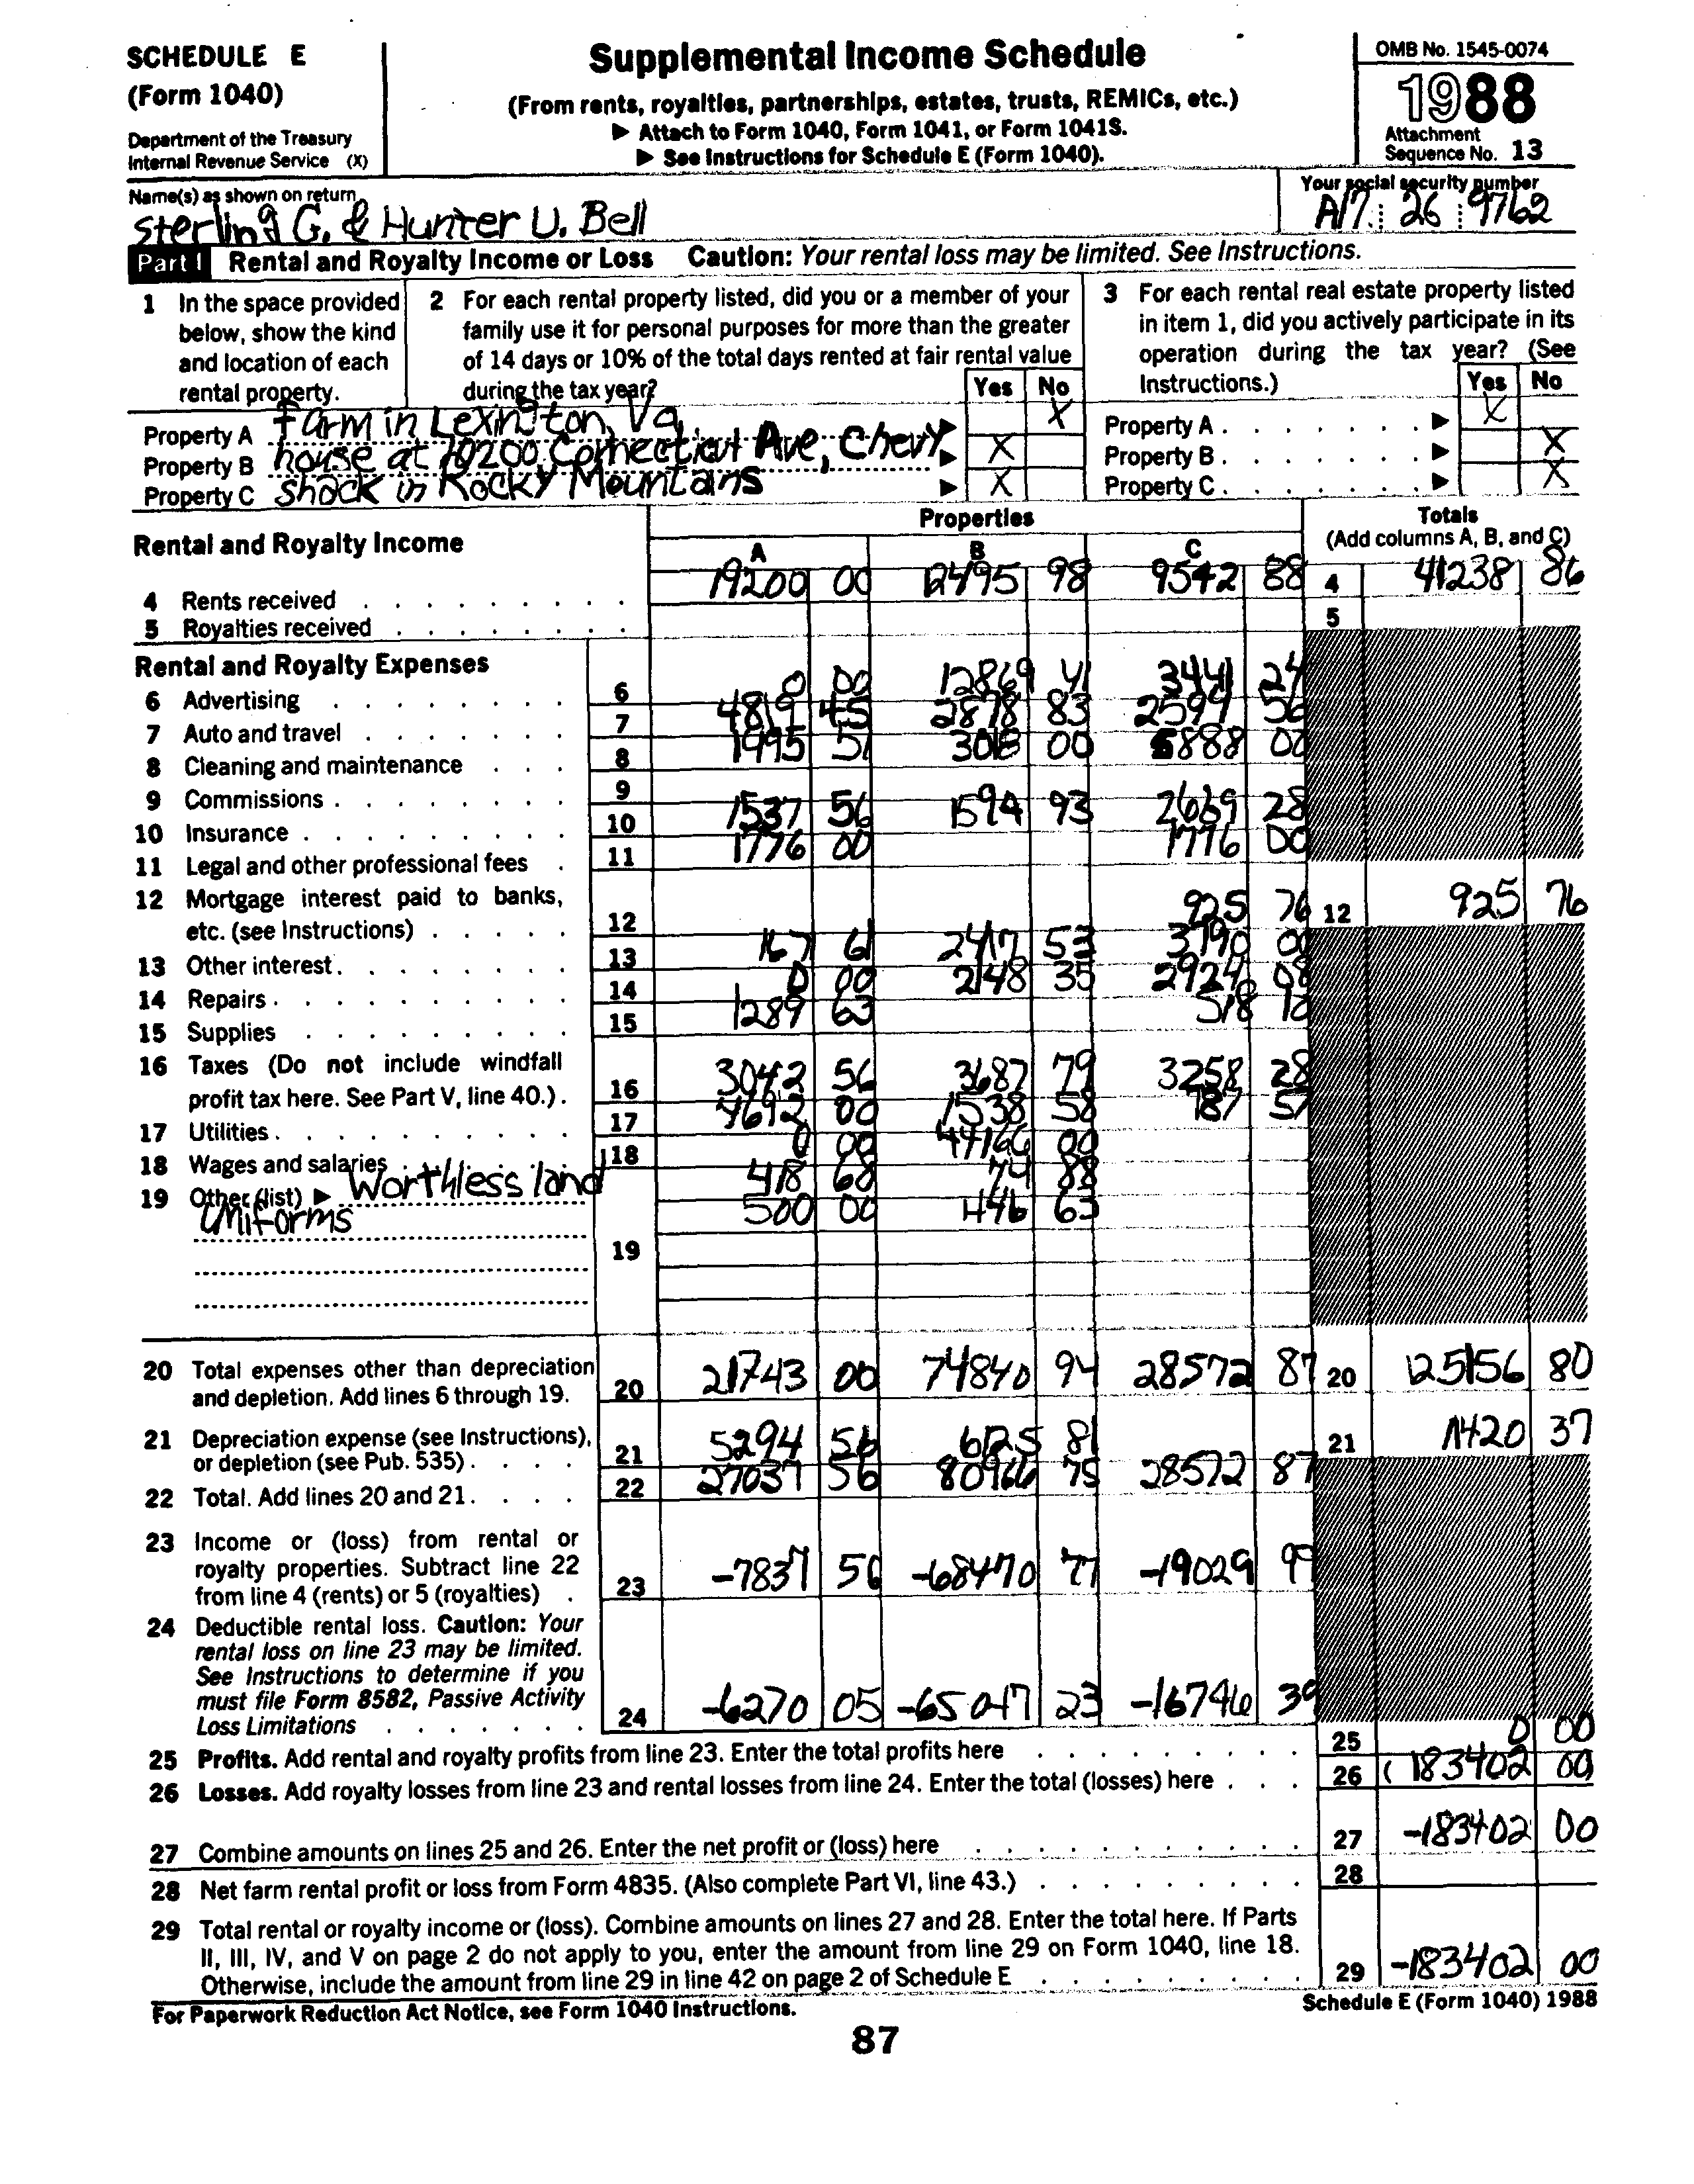 SCHEDULE E
(Form 1040)
Department of the Treasury
Internal Revenue Service (X)
Supplemental Income Schedule
(From rents, royalties, partnerships, estates, trusts, REMICs, etc.)
▶ Attach to Form 1040, Form 1041, or Form 1041S.
▶ See Instructions for Schedule E (Form 1040).
OMB No. 1545-0074
1988
Attachment
Sequence No. 13
Name(s) as shown on return
Sterling G. & Hunter U. Bell
Your social security number
A17 26 9762
Part I Rental and Royalty Income or Loss Caution: Your rental loss may be limited. See Instructions.
1 In the space provided below, show the kind and location of each rental property.
2 For each rental property listed, did you or a member of your family use it for personal purposes for more than the greater of 14 days or 10% of the total days rented at fair rental value during the tax year? Yes No
3 For each rental real estate property listed in item 1, did you actively participate in its operation during the tax year? (See Instructions.) Yes No
Property A Farm in Lexington, Va, ▶ X Property A ▶ X
Property B house at 10200 Connecticut Ave, Chevy ▶ X Property B ▶ X
Property C shack in Rocky Mountains ▶ X Property C ▶ X
Rental and Royalty Income
Properties
A B C
Totals
(Add columns A, B, and C)
4 Rents received 19200 00 12495 98 9542 88 4 41238 86
5 Royalties received 5
Rental and Royalty Expenses
6 Advertising 6 0 00 12869 41 3441 24
7 Auto and travel 7 4819 45 2878 83 2599 56
8 Cleaning and maintenance 8 1995 51 3018 00 6888 00
9 Commissions 9
10 Insurance 10 1537 56 1594 93 2669 28
11 Legal and other professional fees 11 1776 00 1776 00
12 Mortgage interest paid to banks, etc. (see Instructions) 12 925 76 12 925 76
13 Other interest 13 167 61 2417 53 3790 00
14 Repairs 14 0 00 2148 35 2924 08
15 Supplies 15 1289 63 518 10
16 Taxes (Do not include windfall profit tax here. See Part V, line 40.) 16 3042 56 3687 79 3258 28
17 Utilities 17 4692 00 1538 58 787 57
18 Wages and salaries 18 0 00 44166 00
19 Other (list) ▶ Worthless land 418 68 74 88
Uniforms 500 00 446 63
19
20 Total expenses other than depreciation and depletion. Add lines 6 through 19. 20 21743 00 74840 94 28572 87 20 125156 80
21 Depreciation expense (see Instructions), or depletion (see Pub. 535) 21 5294 56 6125 81 21 11420 37
22 Total. Add lines 20 and 21 22 27037 56 80966 75 28572 87
23 Income or (loss) from rental or royalty properties. Subtract line 22 from line 4 (rents) or 5 (royalties) 23 -7837 56 -68470 77 -19029 99
24 Deductible rental loss. Caution: Your rental loss on line 23 may be limited. See Instructions to determine if you must file Form 8582, Passive Activity Loss Limitations 24 -6270 05 -65047 23 -16746 39
25 Profits. Add rental and royalty profits from line 23. Enter the total profits here 25 0 00
26 Losses. Add royalty losses from line 23 and rental losses from line 24. Enter the total (losses) here 26 ( 183402 00)
27 Combine amounts on lines 25 and 26. Enter the net profit or (loss) here 27 -183402 00
28 Net farm rental profit or loss from Form 4835. (Also complete Part VI, line 43.) 28
29 Total rental or royalty income or (loss). Combine amounts on lines 27 and 28. Enter the total here. If Parts II, III, IV, and V on page 2 do not apply to you, enter the amount from line 29 on Form 1040, line 18. Otherwise, include the amount from line 29 in line 42 on page 2 of Schedule E 29 -183402 00
For Paperwork Reduction Act Notice, see Form 1040 Instructions.
Schedule E (Form 1040) 1988
87